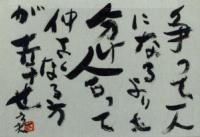 争って一人
になるよりも
分け合って
仲よくなる方
が幸せ